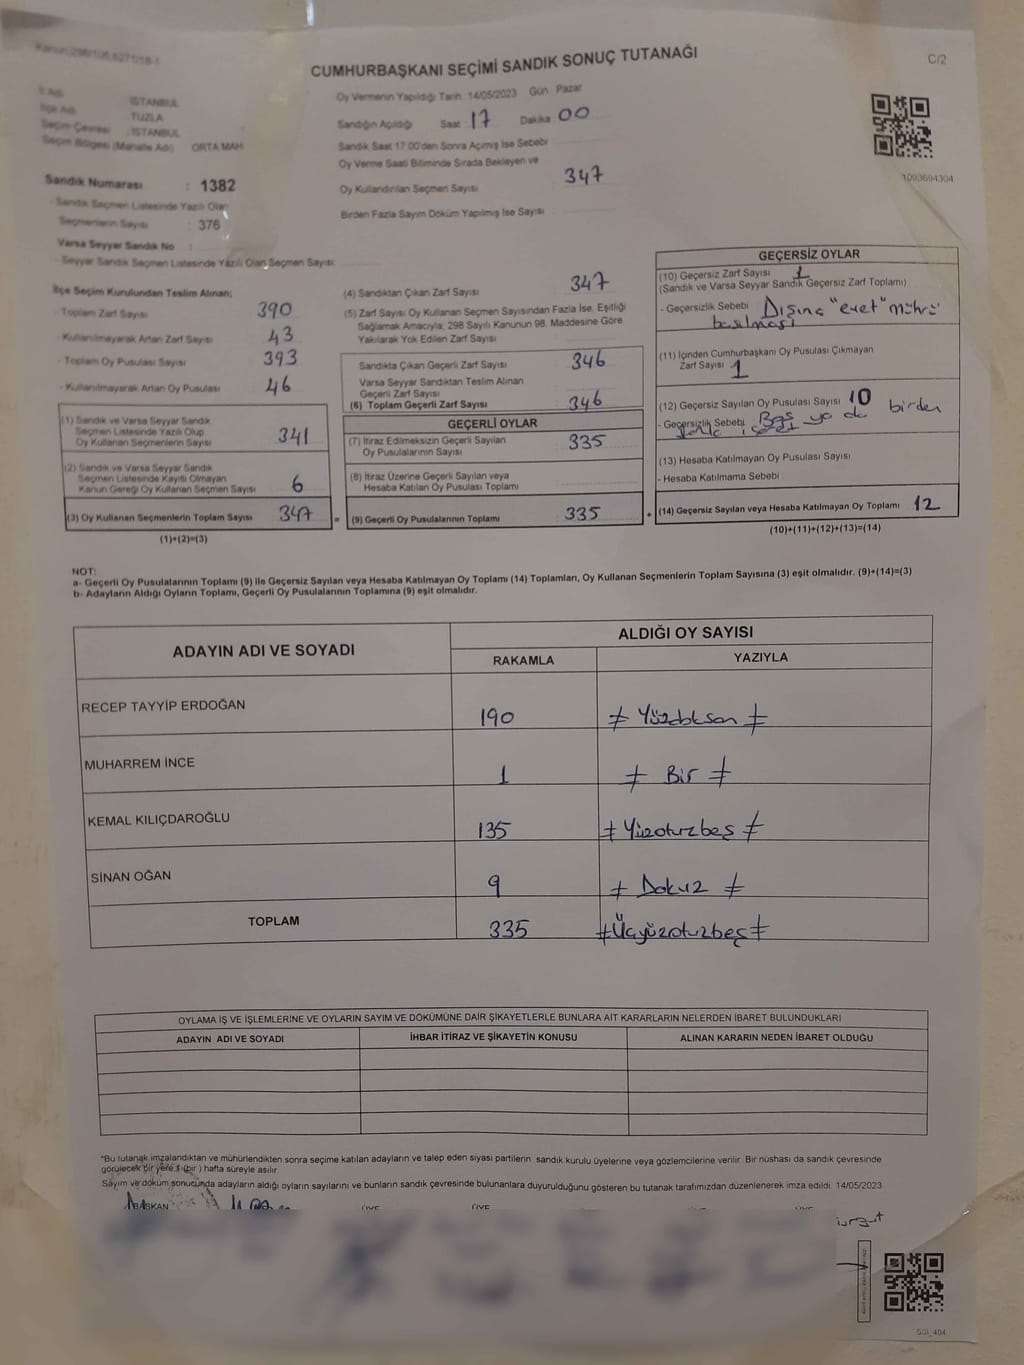 Kanun:298/106,6271/18-1
CUMHURBAŞKANI SEÇİMİ SANDIK SONUÇ TUTANAĞI
C/2
İl Adı
İSTANBUL
İlçe Adı
TUZLA
Seçim Çevresi : İSTANBUL
Seçim Bölgesi (Mahalle Adı) ORTA MAH.
Oy Vermenin Yapıldığı Tarih :14/05/2023 Gün Pazar
Sandığın Açıldığı Saat 17 Dakika 00
Sandık Saat 17:00'den Sonra Açımış İse Sebebi
Oy Verme Saati Bitiminde Sırada Bekleyen ve
Oy Kullandırılan Seçmen Sayısı 347
Birden Fazla Sayım Döküm Yapılmış İse Sayısı
1093694304
Sandık Numarası : 1382
- Sandık Seçmen Listesinde Yazılı Olan
Seçmenlerin Sayısı : 376
Varsa Seyyar Sandık No :
- Seyyar Sandık Seçmen Listesinde Yazılı Olan Seçmen Sayısı:
İlçe Seçim Kurulundan Teslim Alınan;
- Toplam Zarf Sayısı 390
- Kullanılmayarak Artan Zarf Sayısı 43
- Toplam Oy Pusulası Sayısı 393
- Kullanılmayarak Artan Oy Pusulası 46
(1) Sandık ve Varsa Seyyar Sandık
Seçmen Listesinde Yazılı Olup
Oy Kullanan Seçmenlerin Sayısı 341
(2) Sandık ve Varsa Seyyar Sandık
Seçmen Listesinde Kayıtlı Olmayan
Kanun Gereği Oy Kullanan Seçmen Sayısı 6
(3) Oy Kullanan Seçmenlerin Toplam Sayısı 347
(1)+(2)=(3)
(4) Sandıktan Çıkan Zarf Sayısı 347
(5) Zarf Sayısı Oy Kullanan Seçmen Sayısından Fazla İse, Eşitliği
Sağlamak Amacıyla; 298 Sayılı Kanunun 98. Maddesine Göre
Yakılarak Yok Edilen Zarf Sayısı
Sandıkta Çıkan Geçerli Zarf Sayısı 346
Varsa Seyyar Sandıktan Teslim Alınan
Geçerli Zarf Sayısı
(6) Toplam Geçerli Zarf Sayısı 346
GEÇERLİ OYLAR
(7) İtiraz Edilmeksizin Geçerli Sayılan
Oy Pusulalarının Sayısı 335
(8) İtiraz Üzerine Geçerli Sayılan veya
Hesaba Katılan Oy Pusulası Toplamı
= (9) Geçerli Oy Pusulalarının Toplamı 335
GEÇERSİZ OYLAR
(10) Geçersiz Zarf Sayısı 1
(Sandık ve Varsa Seyyar Sandık Geçersiz Zarf Toplamı)
- Geçersizlik Sebebi Dışına "evet" mührü
basılması
(11) İçinden Cumhurbaşkanı Oy Pusulası Çıkmayan
Zarf Sayısı 1
(12) Geçersiz Sayılan Oy Pusulası Sayısı 10
- Geçersizlik Sebebi Boş ya da birden
fazla
(13) Hesaba Katılmayan Oy Pusulası Sayısı
- Hesaba Katılmama Sebebi
+ (14) Geçersiz Sayılan veya Hesaba Katılmayan Oy Toplamı 12
(10)+(11)+(12)+(13)=(14)
NOT:
a- Geçerli Oy Pusulalarının Toplamı (9) ile Geçersiz Sayılan veya Hesaba Katılmayan Oy Toplamı (14) Toplamları, Oy Kullanan Seçmenlerin Toplam Sayısına (3) eşit olmalıdır. (9)+(14)=(3)
b- Adayların Aldığı Oyların Toplamı, Geçerli Oy Pusulalarının Toplamına (9) eşit olmalıdır.
ADAYIN ADI VE SOYADI
ALDIĞI OY SAYISI
RAKAMLA YAZIYLA
RECEP TAYYİP ERDOĞAN 190 ≠ Yüzdoksan ≠
MUHARREM İNCE 1 ≠ Bir ≠
KEMAL KILIÇDAROĞLU 135 ≠ Yüzotuzbeş ≠
SİNAN OĞAN 9 ≠ Dokuz ≠
TOPLAM 335 ≠Üçyüzotuzbeş≠
OYLAMA İŞ VE İŞLEMLERİNE VE OYLARIN SAYIM VE DÖKÜMÜNE DAİR ŞİKAYETLERLE BUNLARA AİT KARARLARIN NELERDEN İBARET BULUNDUKLARI
ADAYIN ADI VE SOYADI İHBAR İTİRAZ VE ŞİKAYETİN KONUSU ALINAN KARARIN NEDEN İBARET OLDUĞU
*Bu tutanak imzalandıktan ve mühürlendikten sonra seçime katılan adayların ve talep eden siyasi partilerin sandık kurulu üyelerine veya gözlemcilerine verilir. Bir nüshası da sandık çevresinde
görülecek bir yere 1 (bir ) hafta süreyle asılır.
Sayım ve döküm sonucunda adayların aldığı oyların sayılarını ve bunların sandık çevresinde bulunanlara duyurulduğunu gösteren bu tutanak tarafımızdan düzenlenerek imza edildi. 14/05/2023
BAŞKAN ÜYE ÜYE
GGI_404